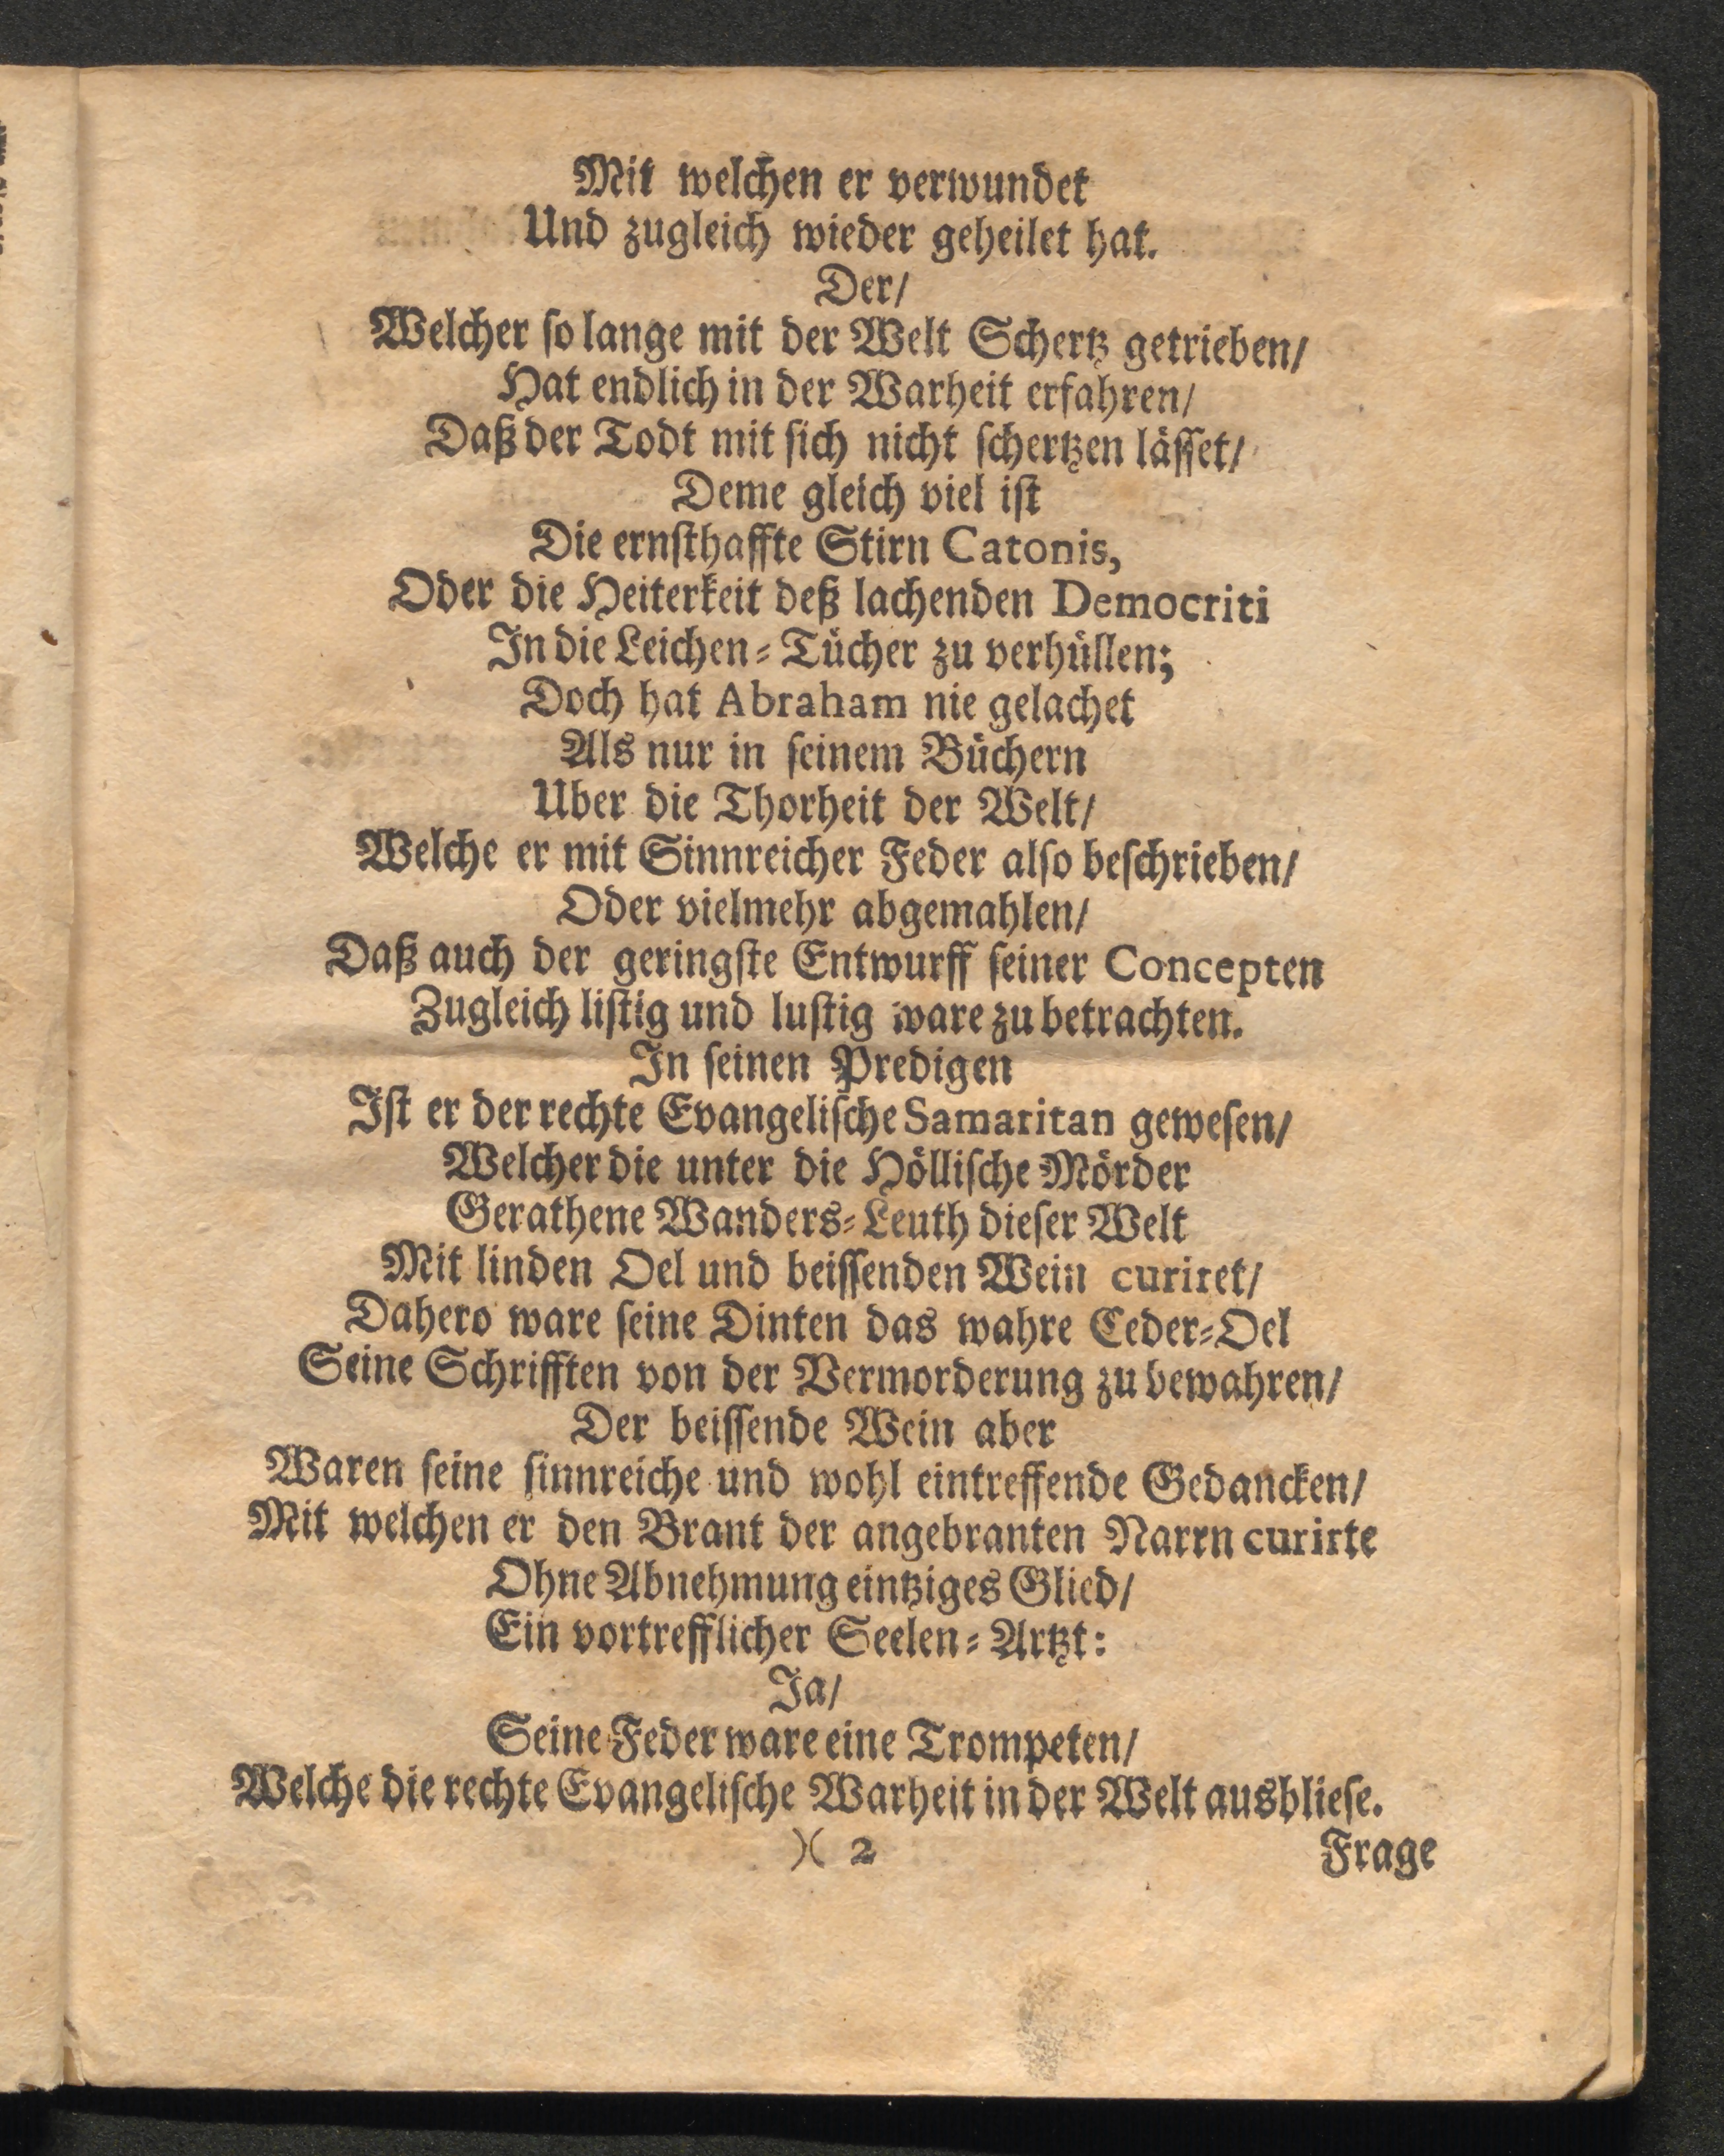 Mit welchen er verwundet
Und zugleich wieder geheilet hat.
Der/
Welcher ſo lange mit der Welt Schertz getrieben/
Hat endlich in der Warheit erfahren/
Daß der Todt mit ſich nicht ſchertzen läſſet/
Deme gleich viel iſt
Die ernſthaffte Stirn Catonis,
Oder die Heiterkeit deß lachenden Democriti
In die Leichen-Tücher zu verhüllen;
Doch hat Abraham nie gelachet
Als nur in ſeinem Büchern
Uber die Thorheit der Welt/
Welche er mit Sinnreicher Feder alſo beſchrieben/
Oder vielmehr abgemahlen/
Daß auch der geringſte Entwurff ſeiner Concepten
Zugleich liſtig und luſtig ware zu betrachten.
In ſeinen Predigen
Iſt er der rechte Evangeliſche Samaritan geweſen/
Welcher die unter die Hölliſche Mörder
Gerathene Wanders-Leuth dieſer Welt
Mit linden Oel und beiſſenden Wein curiret/
Dahero ware ſeine Dinten das wahre Ceder-Oel
Seine Schrifften von der Vermorderung zu bewahren/
Der beiſſende Wein aber
Waren ſeine ſinnreiche und wohl eintreffende Gedancken/
Mit welchen er den Brant der angebranten Narrn curirte
Ohne Abnehmung eintziges Glied/
Ein vortrefflicher Seelen-Artzt:
Ja/
Seine Feder ware eine Trompeten/
Welche die rechte Evangeliſche Warheit in der Welt ausblieſe.
)( 2 Frage